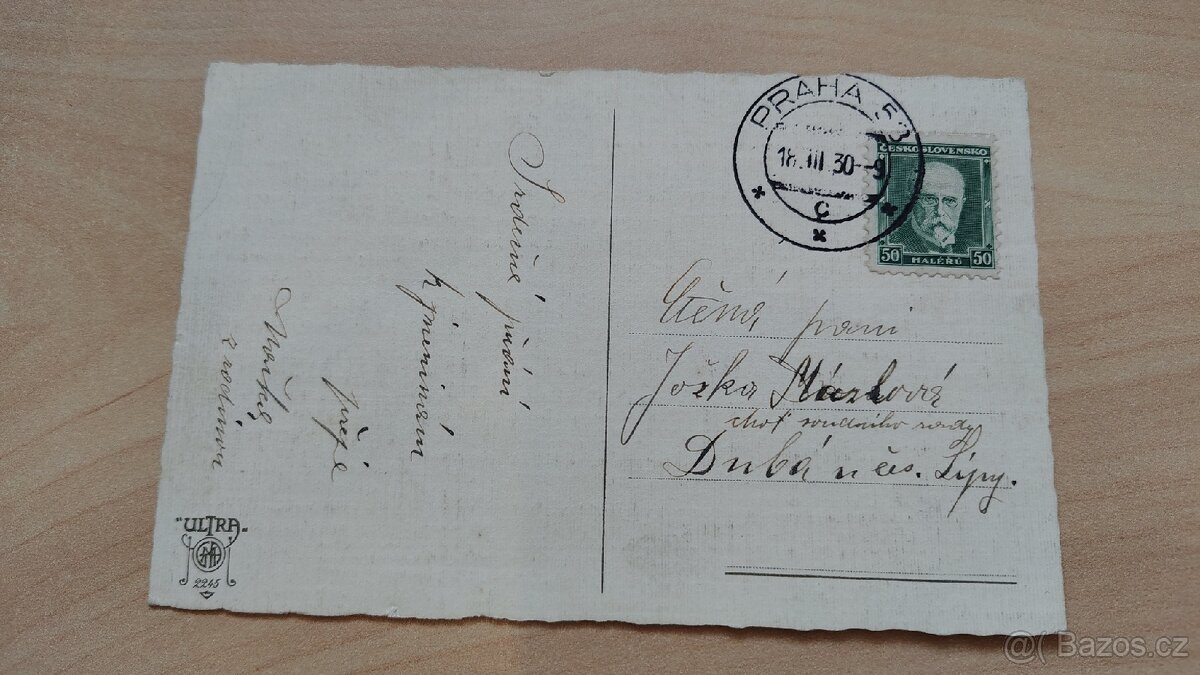 Srdečné přání
k jmeninám
přeje
Mařka
z rodinou
"ULTRA"
2245
PRAHA 53
18.III.30--9
C
ČESKOSLOVENSKO
50 HALÉŘŮ 50
Ctěná paní
Jožka
choť soudního rady
Dubá u čes. Lípy.
@( Bazos.cz